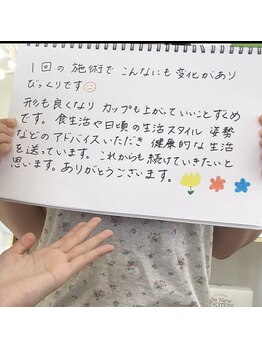 1回の施術でこんなにも変化があり
びっくりです
形も良くなりカップも上がっていいことずくめ
です。食生活や日頃の生活スタイル姿勢
などのアドバイスいただき健康的な生活
を送っています。これからも続けていきたいと
思います。ありがとうございます。
Be New
PROTEIN